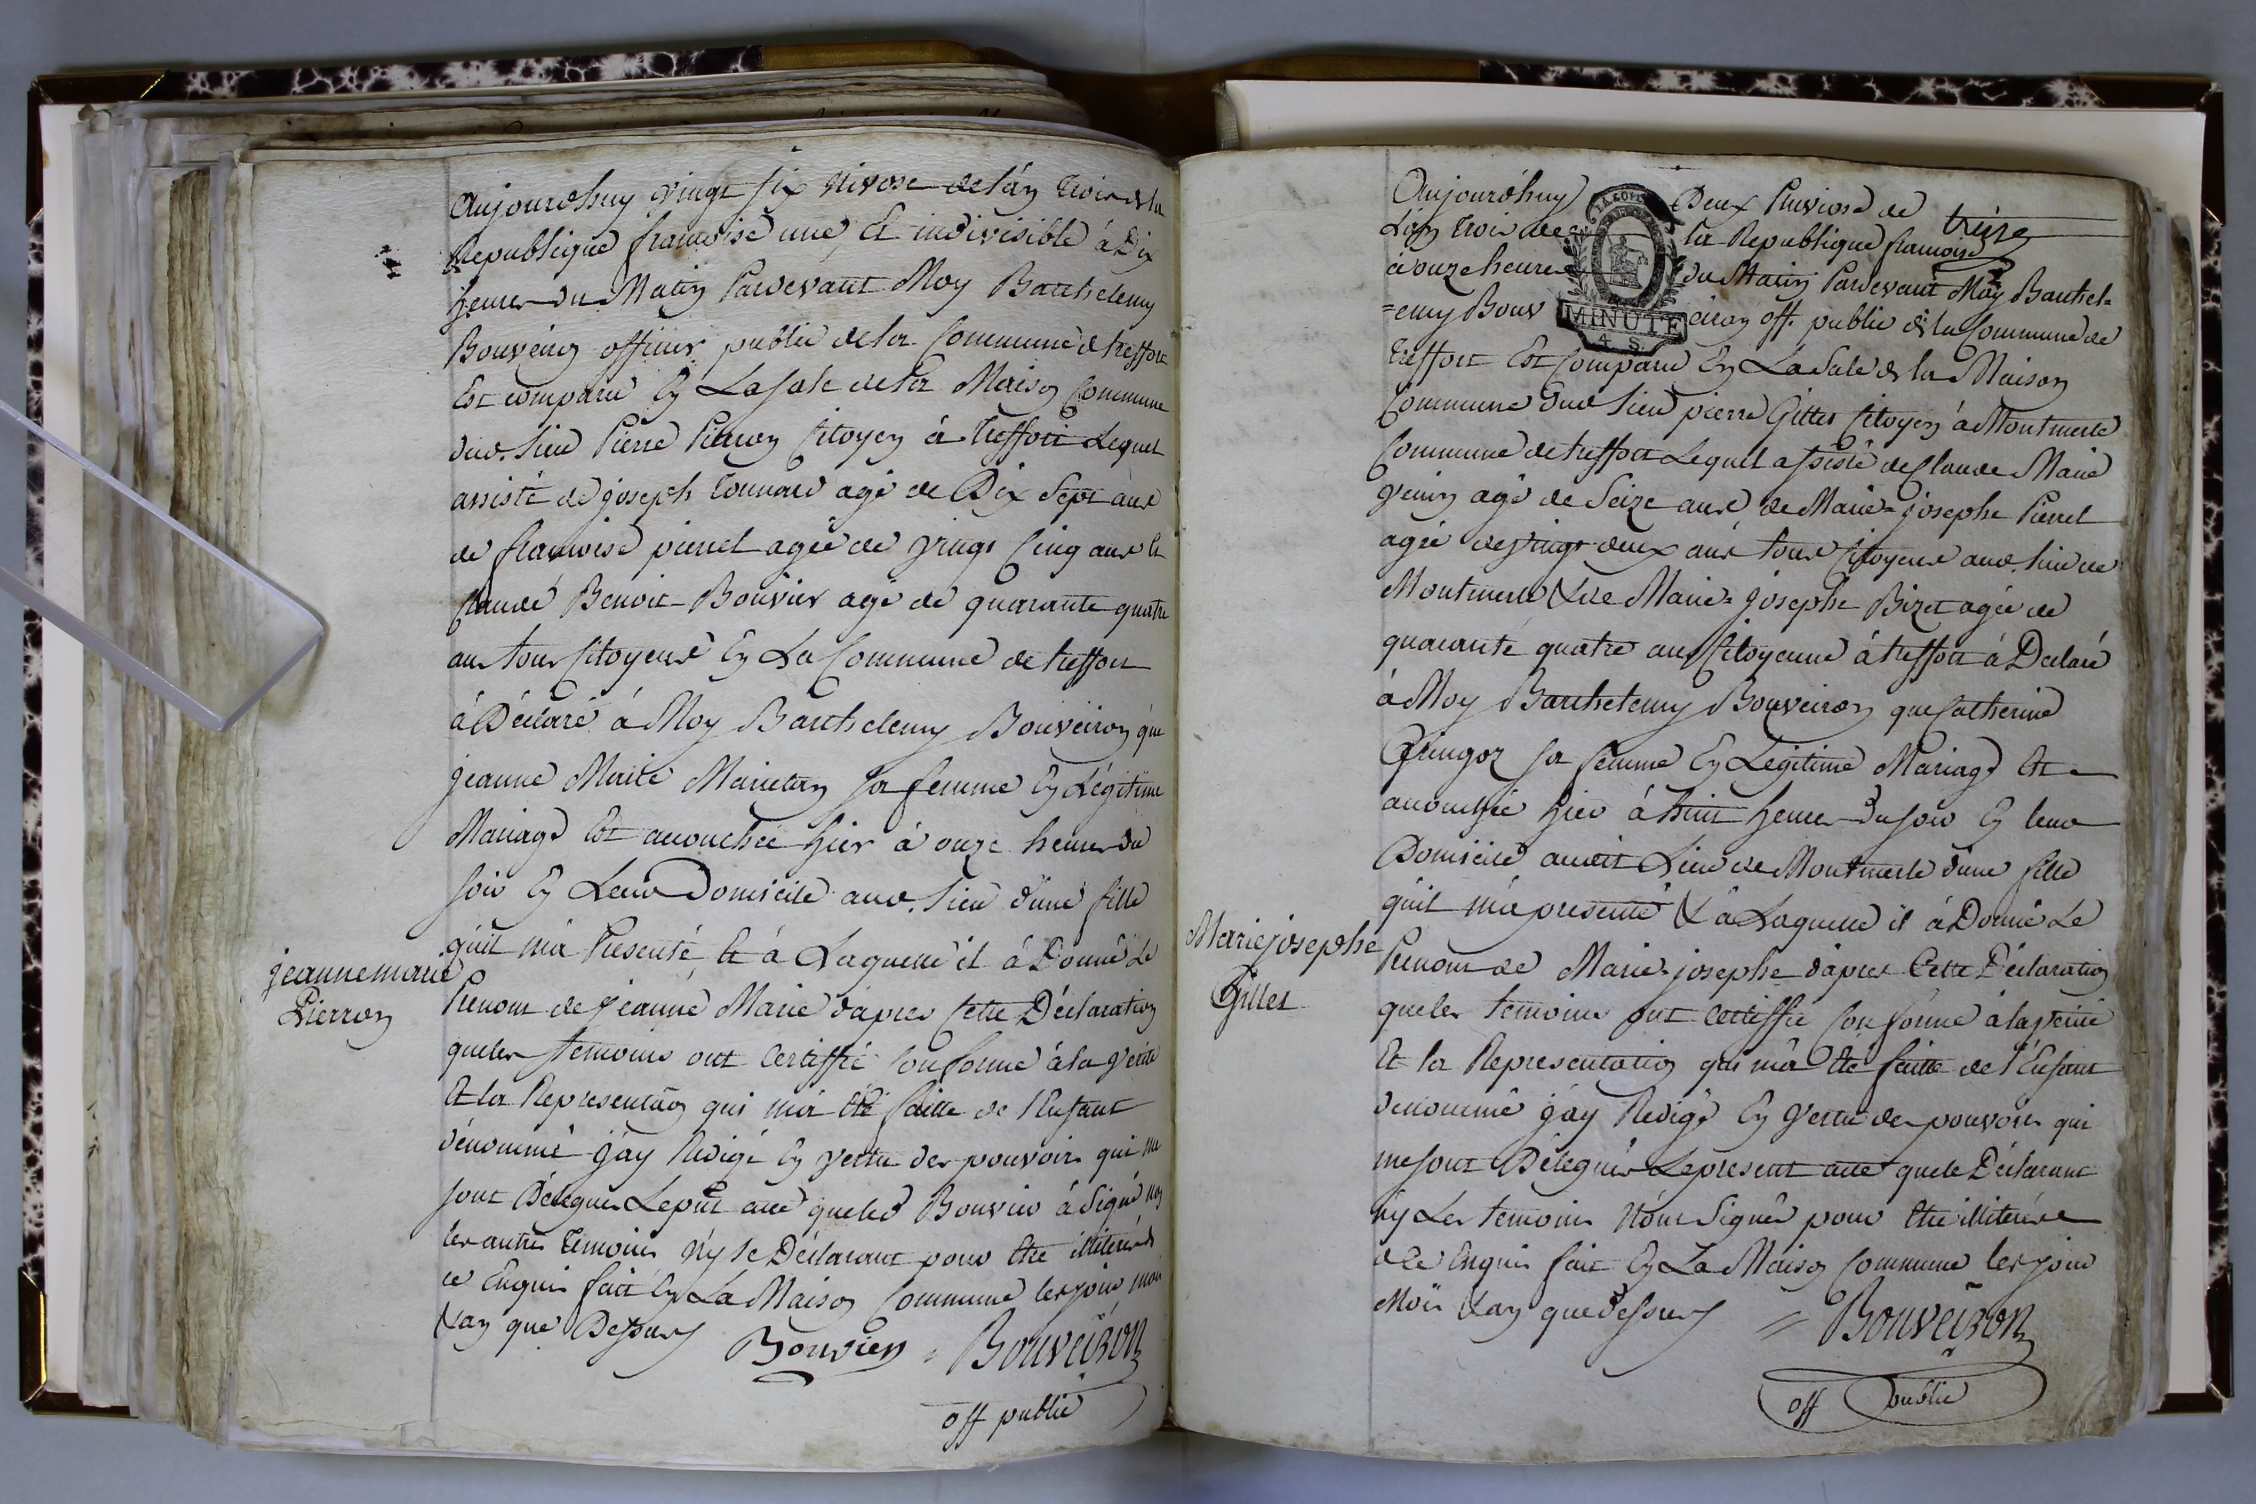 Aujourdhuy vingt six Nivose de lan trois de la
Republique francoise une Et indivisible à Dix
heures du Matin Pardevant Moy Barthelemy
Bouveiron officier public de la Commune de treffort
Est comparu En La sale de la Maison Commune
dud. lieu Pierre Pierron Citoyen à Treffort Lequel
assisté de joseph Tonnard agé de Dix Sept ans
de francoise pierrel agée de vingt Cinq ans et
Claude Benoit Bouvier agé de quarante quatre
ans tous Citoyens En La Commune de treffort
à Déclaré à Moy Barthelemy Bouveiron que
jeanne Marie Marietan sa femme En Légitime
Mariage Est accouchée hier à onze heures du
soir En Leur Domicile aud. lieu d'une fille
quil m'a Presenté Et à Laquelle il à Donné Le
jeanne marie
Pierron
Prenom de jeanne Marie d'apres Cette Déclaration
que les temoins ont Certiffié Conforme à la verité
Et la Representaõn qui m'a été faitte de l'Enfant
dénommé j'ay Redigé En vertu des pouvoirs qui me
sont Délegués Le pñt acte que led Bouvier à Signé non
les autres Témoins N'y le Déclarant pour Etre illiterés
de ce Enquis fait En La Maison Commune les jour mois
& an que Dessus
Bouvier = Bouveiron
off public
treize
Aujourdhuy Deux Pluviose de
L'an trois de la Republique francoise
à onze heures du Matin Pardevant Moy Barthel=
=emy Bouveiron off. public de la Commune de
LA LOI
MINUTE
4 S.
Treffort Est Comparu En La Sale de la Maison
Commune dud lieu pierre Gilles Citoyen à Montmerle
Commune de treffort Lequel assisté de Claude Marie
agé de Seize ans de Marie=josephe Pierrel
agée de vingt deux ans tous Citoyens aud. lieu de
Montmerle & de Marie=josephe Bizet agée de
quarante quatre ans Citoyenne à treffort à Declaré
à Moy Barthelemy Bouveiron que Catherine
Gringoz sa femme En Legitime Mariage Est
accouchée hier à huit heures du soir En leur
Domicile audit Lieu de Montmerle d'une fille
quil m'a presenté & à Laquelle il à Donné Le
Marie josephe
Gilles
Prenom de Marie=josephe d'apres Cette Déclaration
que les temoins ont certiffié Conforme à la verité
Et la Representation qui m'a été faitte de l'Enfant
denommé j'ay Redigé En vertu des pouvoirs qui
me sont Délegués Le present acte que le Déclarant
n'y Les temoins N'ont Signés pour Etre illiterés
de ce Enquis fait En La Maison Commune les jour
Mois & an que dessus = Bouveiron
off public